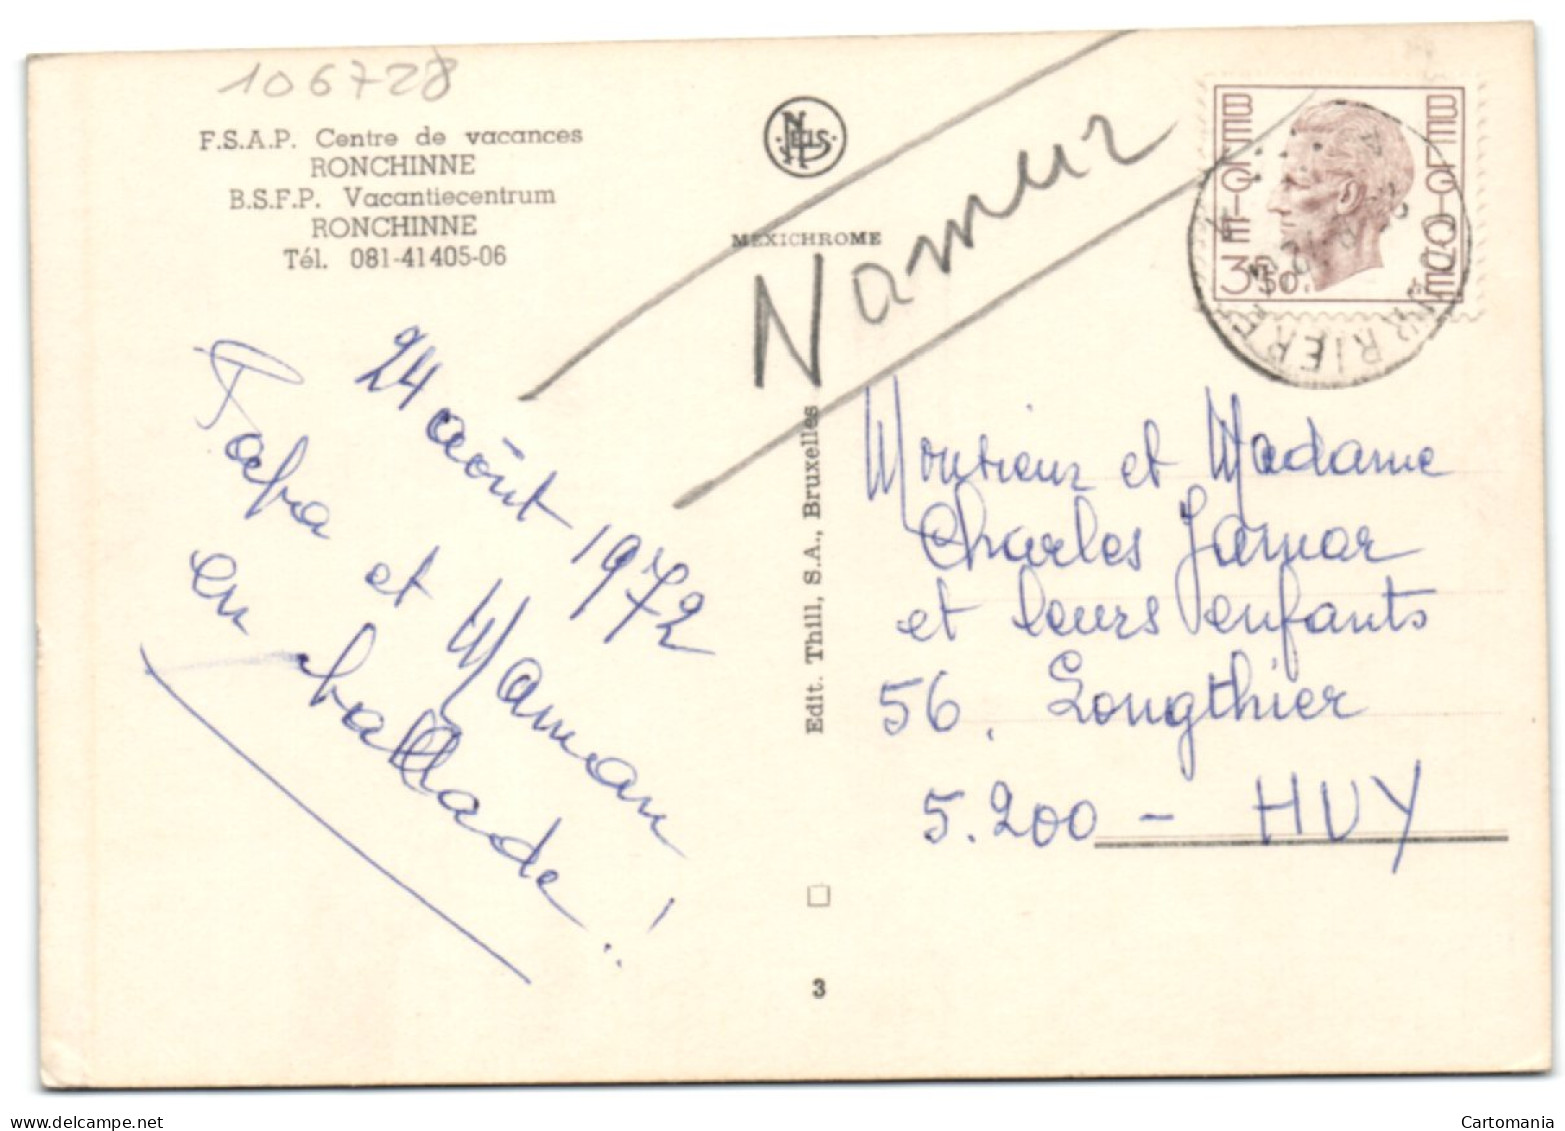 106728
F.S.A.P. Centre de vacances
RONCHINNE
B.S.F.P. Vacantiecentrum
RONCHINNE
Tél. 081-41405-06
NELS
MEXICHROME
Namur
BELGIE
BELGIQUE
3,50
24 août 1972
Papa et Maman
en ballade..!
Edit. Thill, S.A., Bruxelles
3
Monsieur et Madame
Charles Jamar
et leurs enfants
56, Longthier
5.200 - HUY
delcampe.net
Cartomania